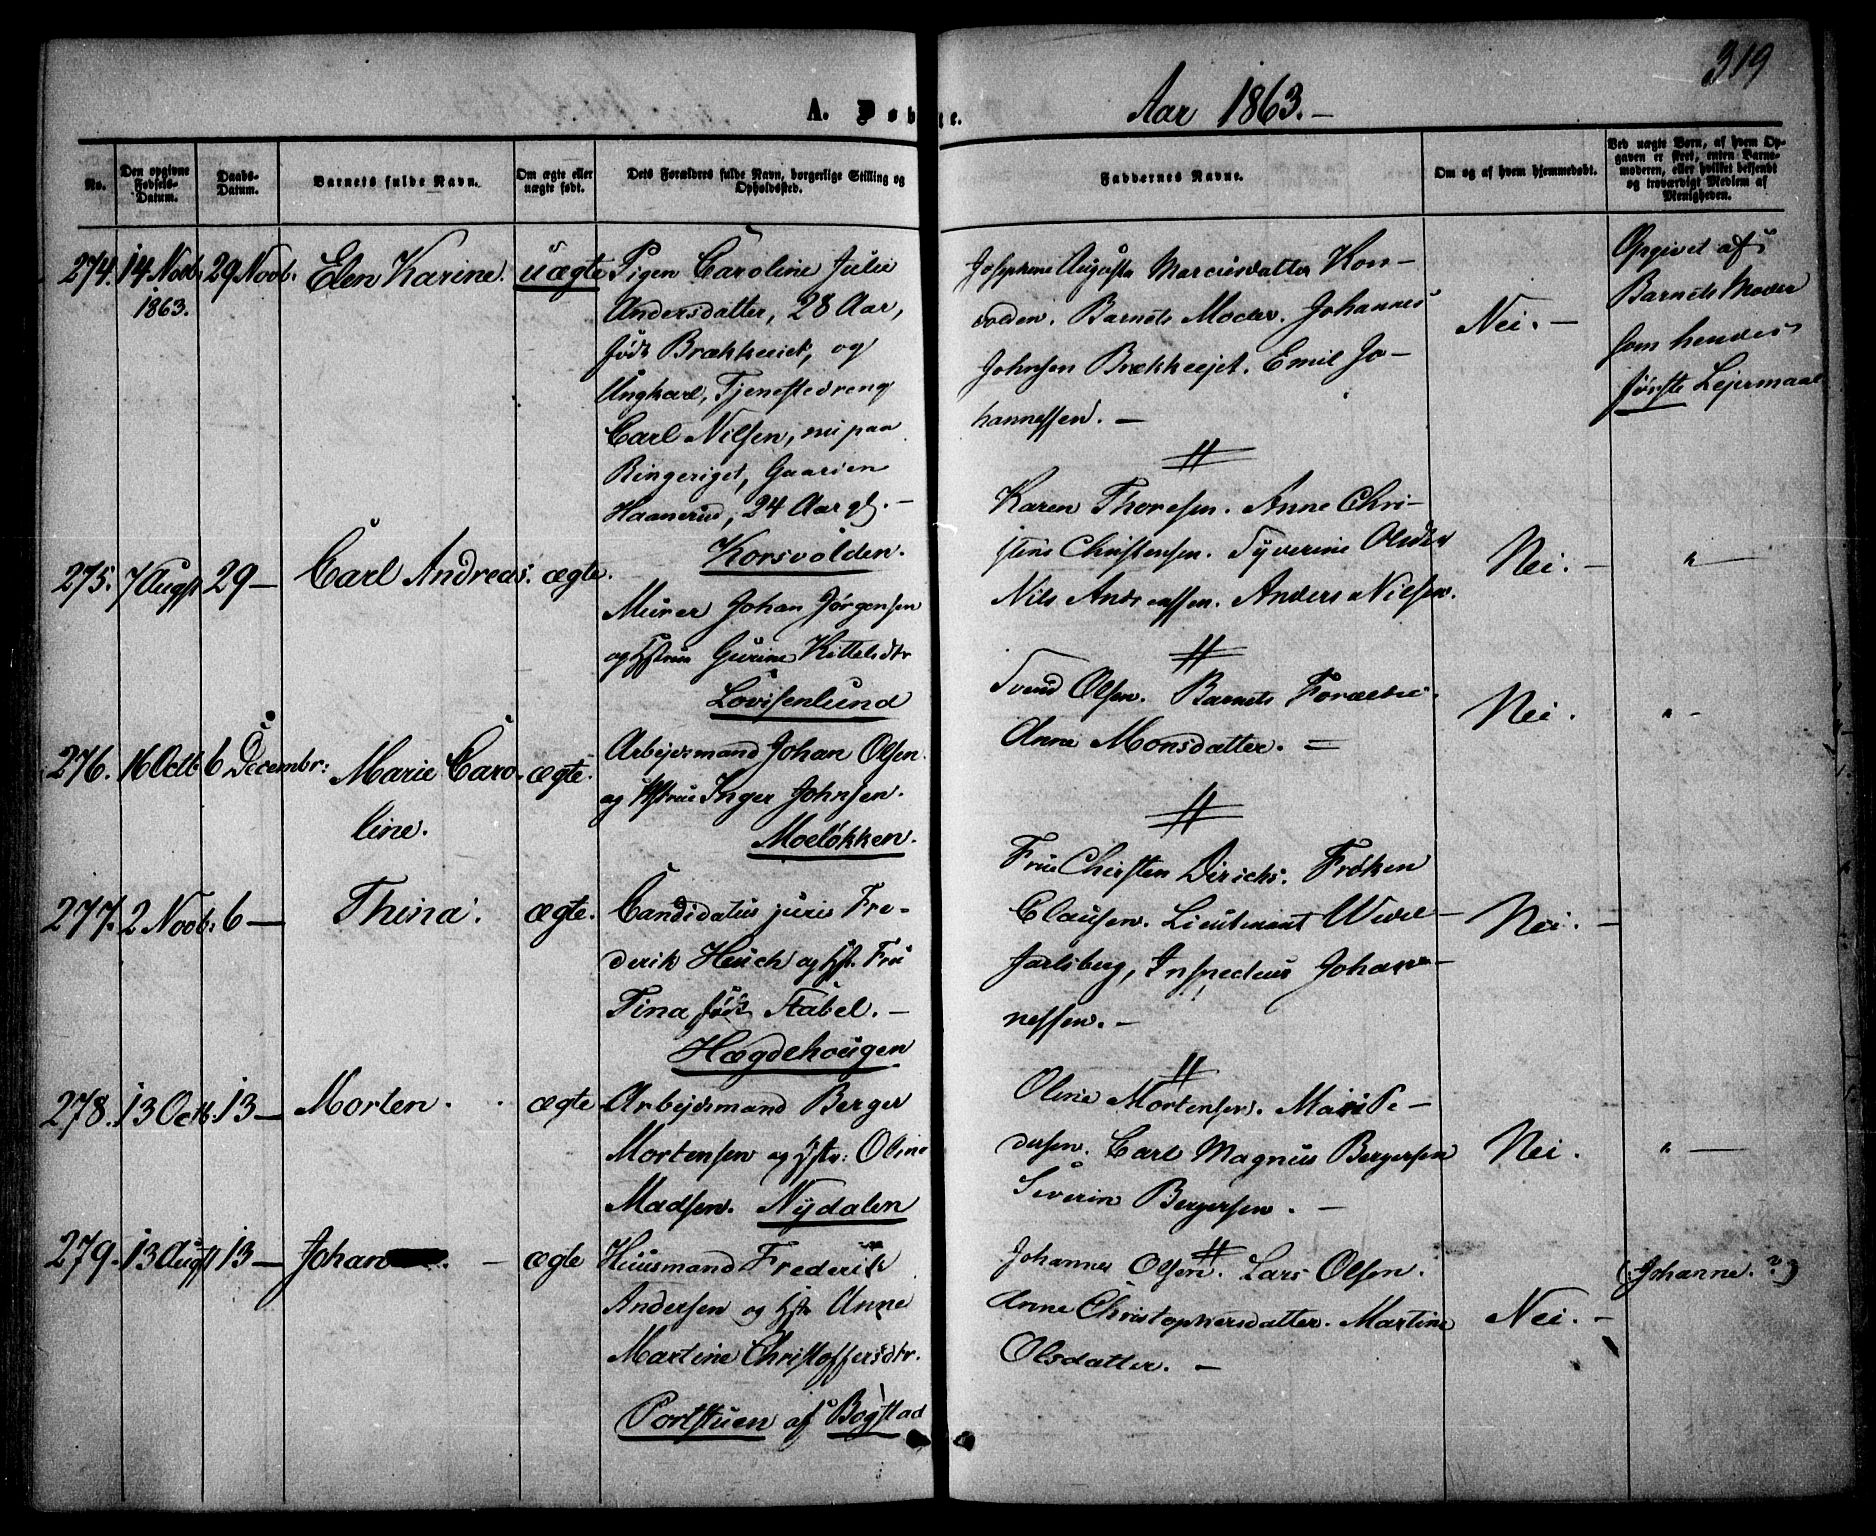 319
A. Døbte.
Aar 1863.-
No.
Den opgivne Fødsels-Datum.
Daabs-Datum.
Barnets fulde Navn.
Om ægte eller uægte født.
Dets Forældres fulde Navn, borgerlige Stilling og Opholdssted.
Faddernes Navne.
Om og af hvem hjemmedøbt.
Ved uægte Børn, af hvem Opgaven er skeet, enten Barnemoderen, eller hvilket bekjendt og troværdigt Medlem af Menigheden.
274. 14 Novb: 1863. 29 Novb: Elen Karine. uægte
Pigen Caroline Julie
Andersdatter, 28 Aar,
født Brækkeeiet, og
Ungkarl, Tjenestedreng
Carl Nilsen, nu paa
Ringeriget, Gaarden
Haanerud, 24 Aar gl. -
Korsvolden.
Josephine Augusta Marcusdatter Kors-
volden. Barnets Moder. Johannes
Johnsen Brækkeejet. Emil Jo-
hannessen. -
Nei. -
Opgivet af
Barnets Moder
som hendes
første Lejermaal
275. 7 Augst 29 - Carl Andreas. ægte.
Murer Johan Jørgensen
og Hstru Gurine Kittelsdtr
Lovisenlund
Karen Thoresen. Anne Chri-
stine Christensen. Syverine Olsdtr
Nils Andreassen. Anders Nilsen.
Nei. - " -
276. 16 Octb. 6 Decembr: Marie Caro-
line. ægte.
Arbejdsmand Johan Olsen
og Hstrue Inger Johnsen.
Moeløkken.
Svend Olsen. Barnets Forældre.
Anne Monsdatter. =
Nei. " -
277. 2 Novb: 6 - Thina. ægte.
Candidatus juris Fre-
derik Heuch og Hst. Fru
Tina født Stabel. -
Hægdehougen
Frue Chirsten Dirichs. Frøken
Clausen. Lieutenant Wedel-
Jarlsberg, Inspecteur Johan-
nessen. -
Nei. -
278. 13 Octb. 13 - Morten. ægte
Arbejdsmand Berger
Mortensen og Hstr: Oline
Madsen. Nydalen
Oline Mortensen. Mari Pe-
dersen. Carl Magnus Bergersen
Severin Bergersen. -
Nei. " -
279. 13 Augst 13 - Johan. - ægte
Huusmand Frederik
Andersen og Hstr Anne
Martine Christoffersdtr.
Portstuen af Bogstad
Johannes Olsen. Lars Olsen.
Anne Christophersdatter. Martine
Olsdatter. -
Nei. -
(: Johanne. ?)